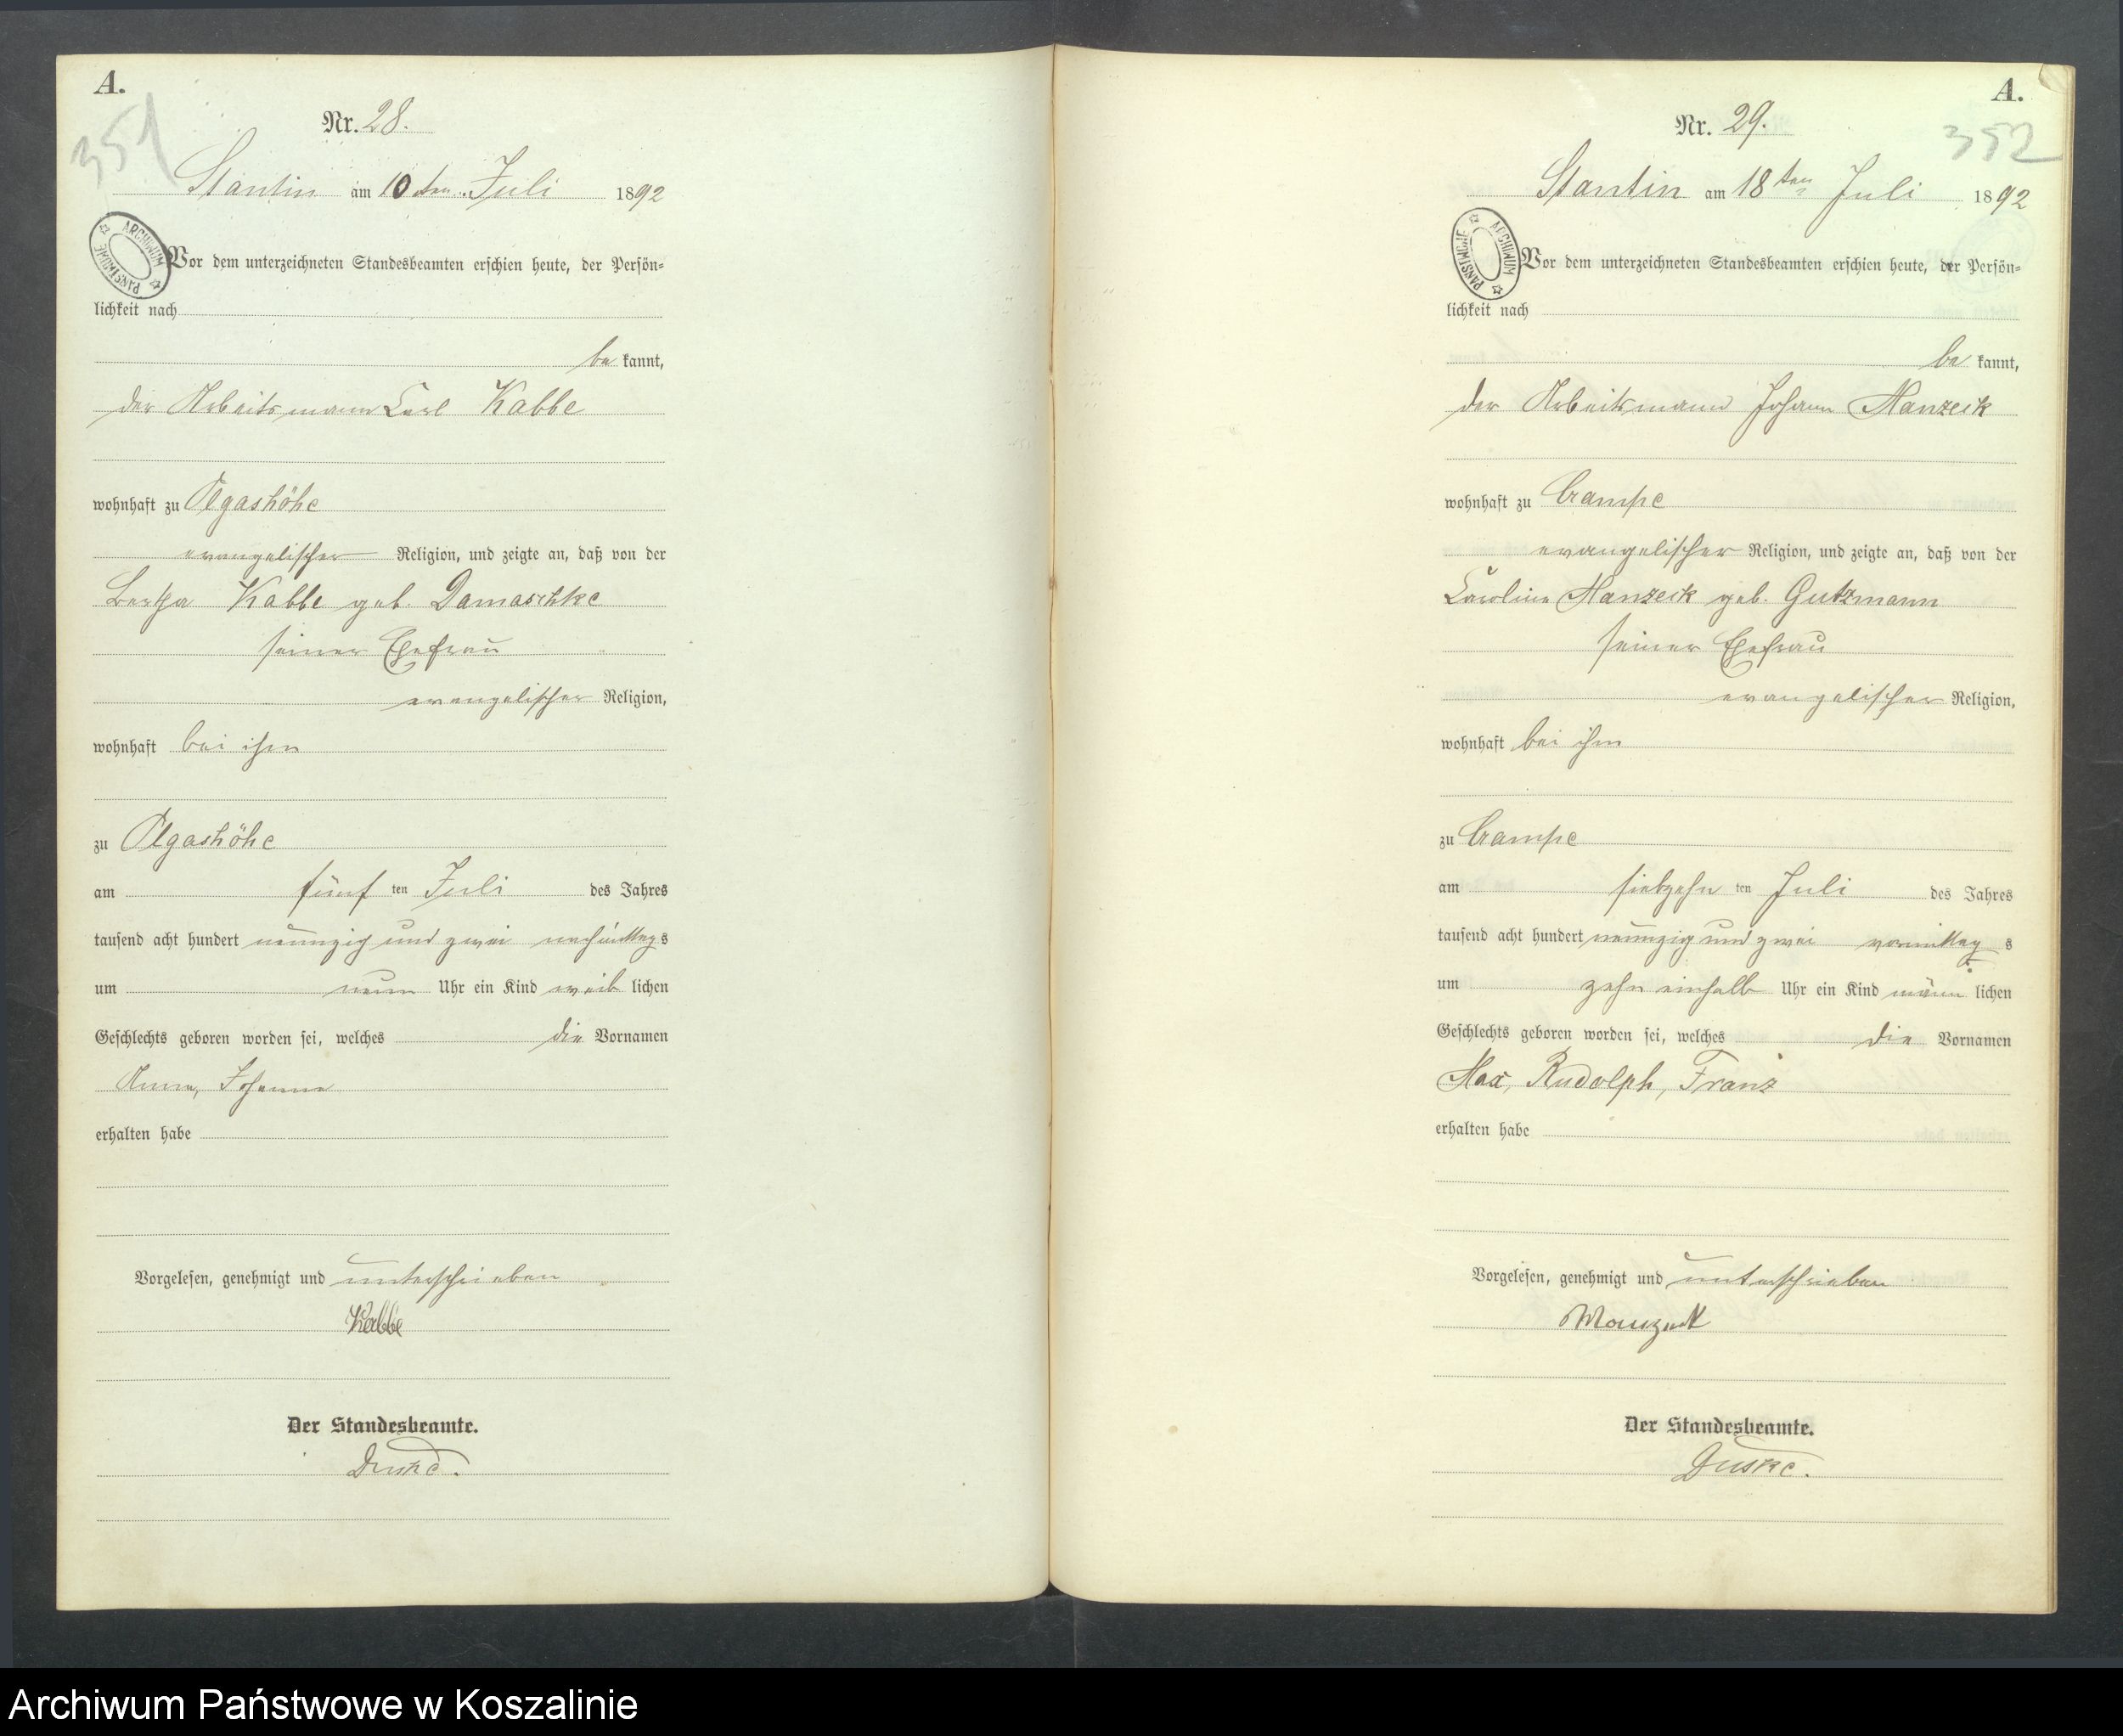 A.
351
Nr. 28.
Stantin am 10 ten Juli 1892
ARCHIWUM PAŃSTWOWE
Vor dem unterzeichneten Standesbeamten erschien heute, der Persön-
lichkeit nach
be kannt,
der Arbeitsmann Carl Kabbe
wohnhaft zu Olgashöhe
evangelischer Religion, und zeigte an, daß von der
Bertha Kabbe geb. Damaschke
seiner Ehefrau
evangelischer Religion,
wohnhaft bei ihm
zu Olgashöhe
am fünf ten Juli des Jahres
tausend acht hundert neunzig und zwei nachmittags
um neun Uhr ein Kind weib lichen
Geschlechts geboren worden sei, welches die Vornamen
Anna, Johanna
erhalten habe
Vorgelesen, genehmigt und unterschrieben
Kabbe
Der Standesbeamte.
Duske.
A.
352
Nr. 29.
Stantin am 18 ten Juli 1892
ARCHIWUM PAŃSTWOWE
Vor dem unterzeichneten Standesbeamten erschien heute, der Persön-
lichkeit nach
be kannt,
der Arbeitsmann Johann Manzeck
wohnhaft zu Crampe
evangelischer Religion, und zeigte an, daß von der
Caroline Manzeck geb. Gutzmann
seiner Ehefrau
evangelischer Religion,
wohnhaft bei ihm
zu Crampe
am siebzehn ten Juli des Jahres
tausend acht hundert neunzig und zwei vormittag s
um zehn einhalb Uhr ein Kind männ lichen
Geschlechts geboren worden sei, welches die Vornamen
Max, Rudolph, Franz
erhalten habe
Vorgelesen, genehmigt und unterschrieben
Manzeck
Der Standesbeamte.
Duske.
Archiwum Państwowe w Koszalinie